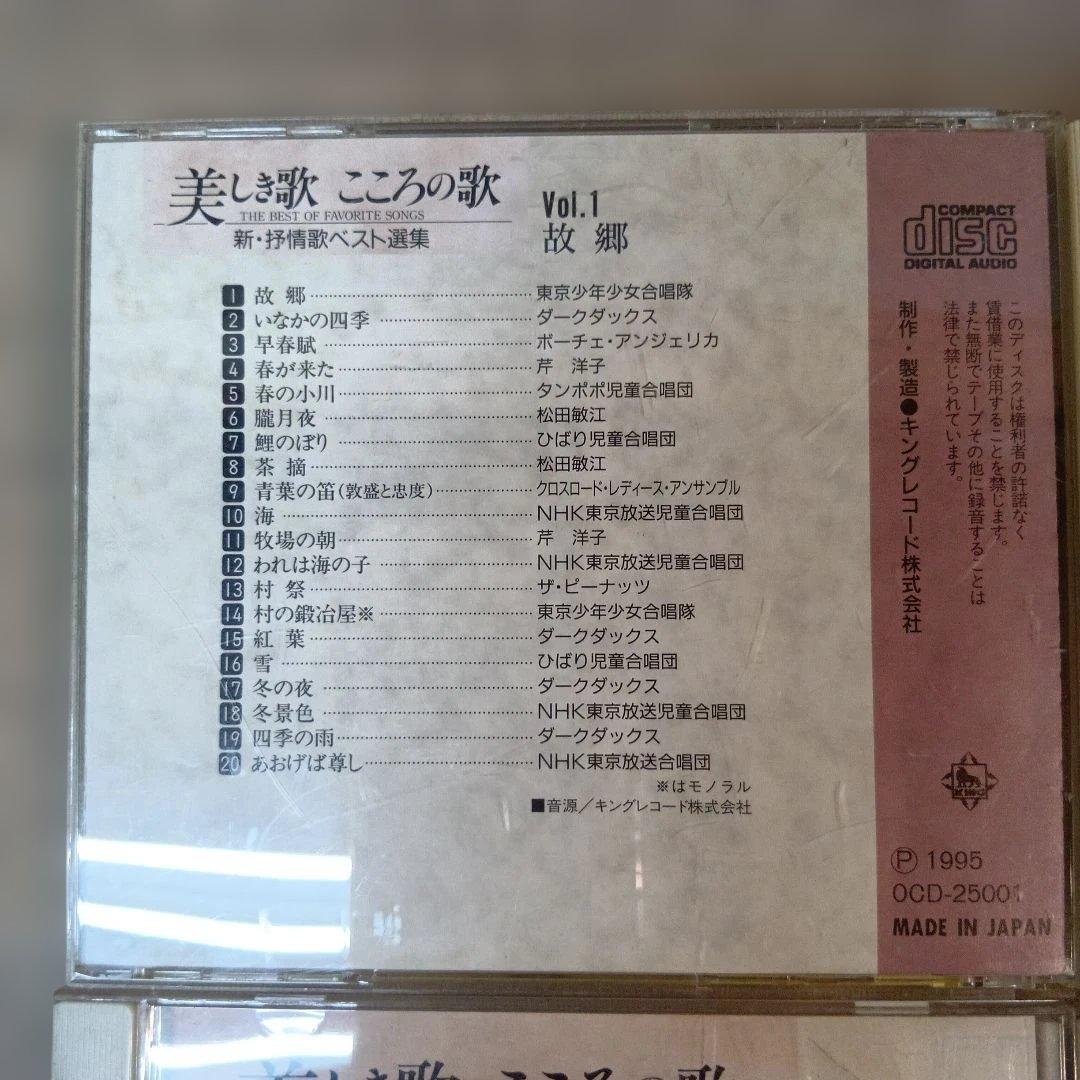 美しき歌 こころの歌
THE BEST OF FAVORITE SONGS
新・抒情歌ベスト選集
Vol.1
故 郷
1 故 郷 東京少年少女合唱隊
2 いなかの四季 ダークダックス
3 早春賦 ボーチェ・アンジェリカ
4 春が来た 芹 洋子
5 春の小川 タンポポ児童合唱団
6 朧月夜 松田敏江
7 鯉のぼり ひばり児童合唱団
8 茶 摘 松田敏江
9 青葉の笛(敦盛と忠度) クロスロード・レディース・アンサンブル
10 海 NHK東京放送児童合唱団
11 牧場の朝 芹 洋子
12 われは海の子 NHK東京放送児童合唱団
13 村 祭 ザ・ピーナッツ
14 村の鍛冶屋※ 東京少年少女合唱隊
15 紅 葉 ダークダックス
16 雪 ひばり児童合唱団
17 冬の夜 ダークダックス
18 冬景色 NHK東京放送児童合唱団
19 四季の雨 ダークダックス
20 あおげば尊し NHK東京放送合唱団
※はモノラル
■音源／キングレコード株式会社
COMPACT
disc
DIGITAL AUDIO
このディスクは権利者の許諾なく
賃借業に使用することを禁じます。
また無断でテープその他に録音することは
法律で禁じられています。
制作・製造●キングレコード株式会社
KING
Ⓟ 1995
OCD-25001
MADE IN JAPAN
美しき歌 こころの歌